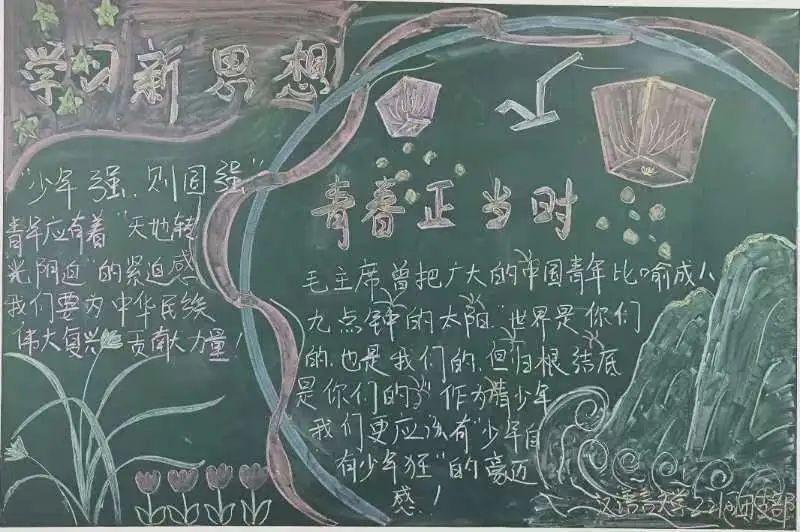 学习新思想
"少年强,则国强"
青年应有着"天地转
光阴迫"的紧迫感
我们要为中华民族
伟大复兴 贡献大力量!
青春正当时
毛主席曾把广大的中国青年比喻成八
九点钟的太阳"世界是你们
的,也是我们的,但归根结底
是你们的"作为青少年
我们更应该有"少年自
有少年狂"的豪迈
感!
汉语言文学 团支部